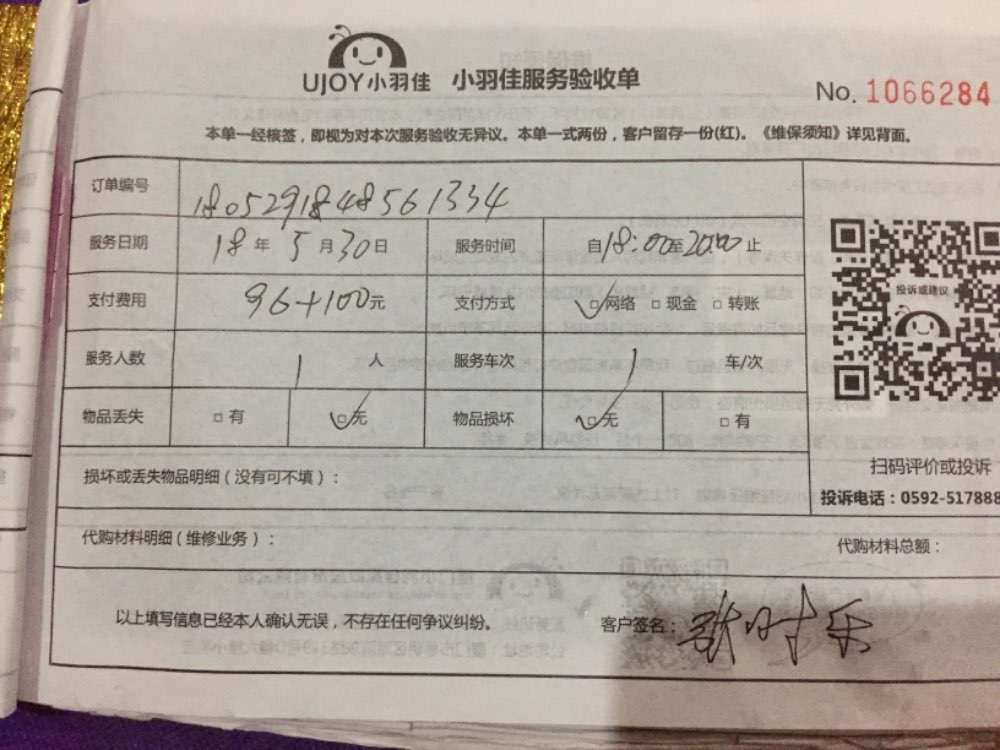 UJOY小羽佳 小羽佳服务验收单
No. 1066284
本单一经核签，即视为对本次服务验收无异议。本单一式两份，客户留存一份(红)。《维保须知》详见背面。
订单编号 1805291848561334
服务日期 18 年 5 月 30 日 服务时间 自18:00至20:00止
投诉或建议
支付费用 96+100元 支付方式 □网络 □现金 □转账
服务人数 1 人 服务车次 1 车/次
物品丢失 □有 □无 物品损坏 □无 □有
扫码评价或投诉
损坏或丢失物品明细（没有可不填）：
投诉电话：0592-517888
代购材料明细（维修业务）：
代购材料总额：
以上填写信息已经本人确认无误，不存在任何争议纠纷。 客户签名：张时乐